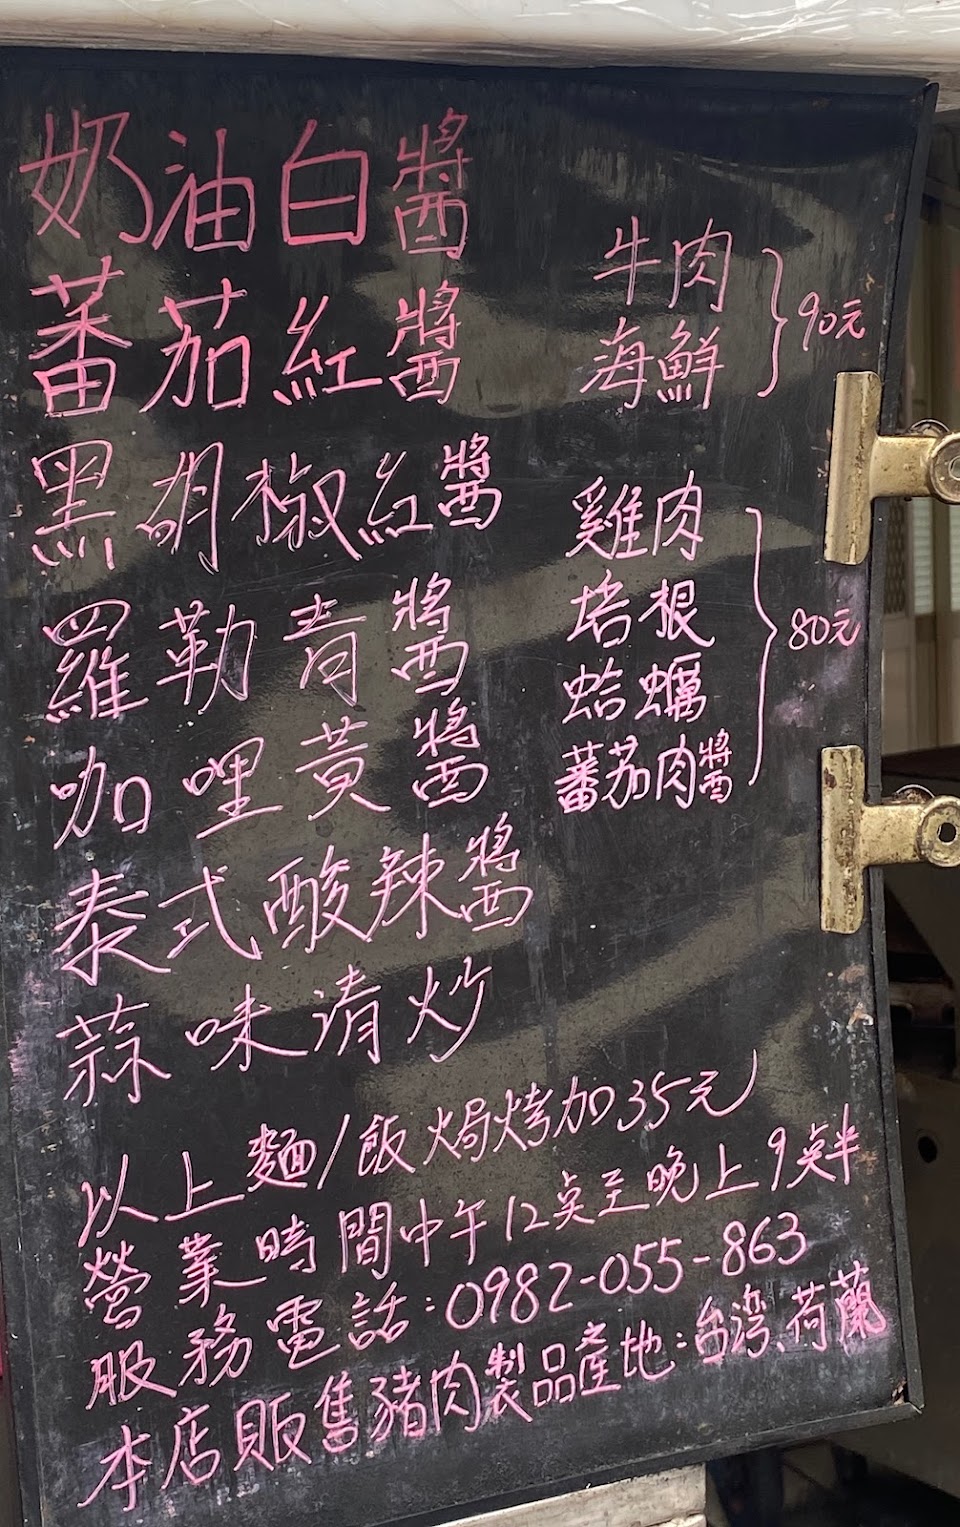 奶油白醬
蕃茄紅醬
黑胡椒紅醬
羅勒青醬
咖哩黃醬
泰式酸辣醬
蒜味清炒
牛肉
海鮮
90元
雞肉
培根
蛤蠣
蕃茄肉醬
80元
以上麵/飯焗烤加35元
營業時間中午12点至晚上9点半
服務電話:0982-055-863
本店販售豬肉製品之產地:台湾、荷蘭